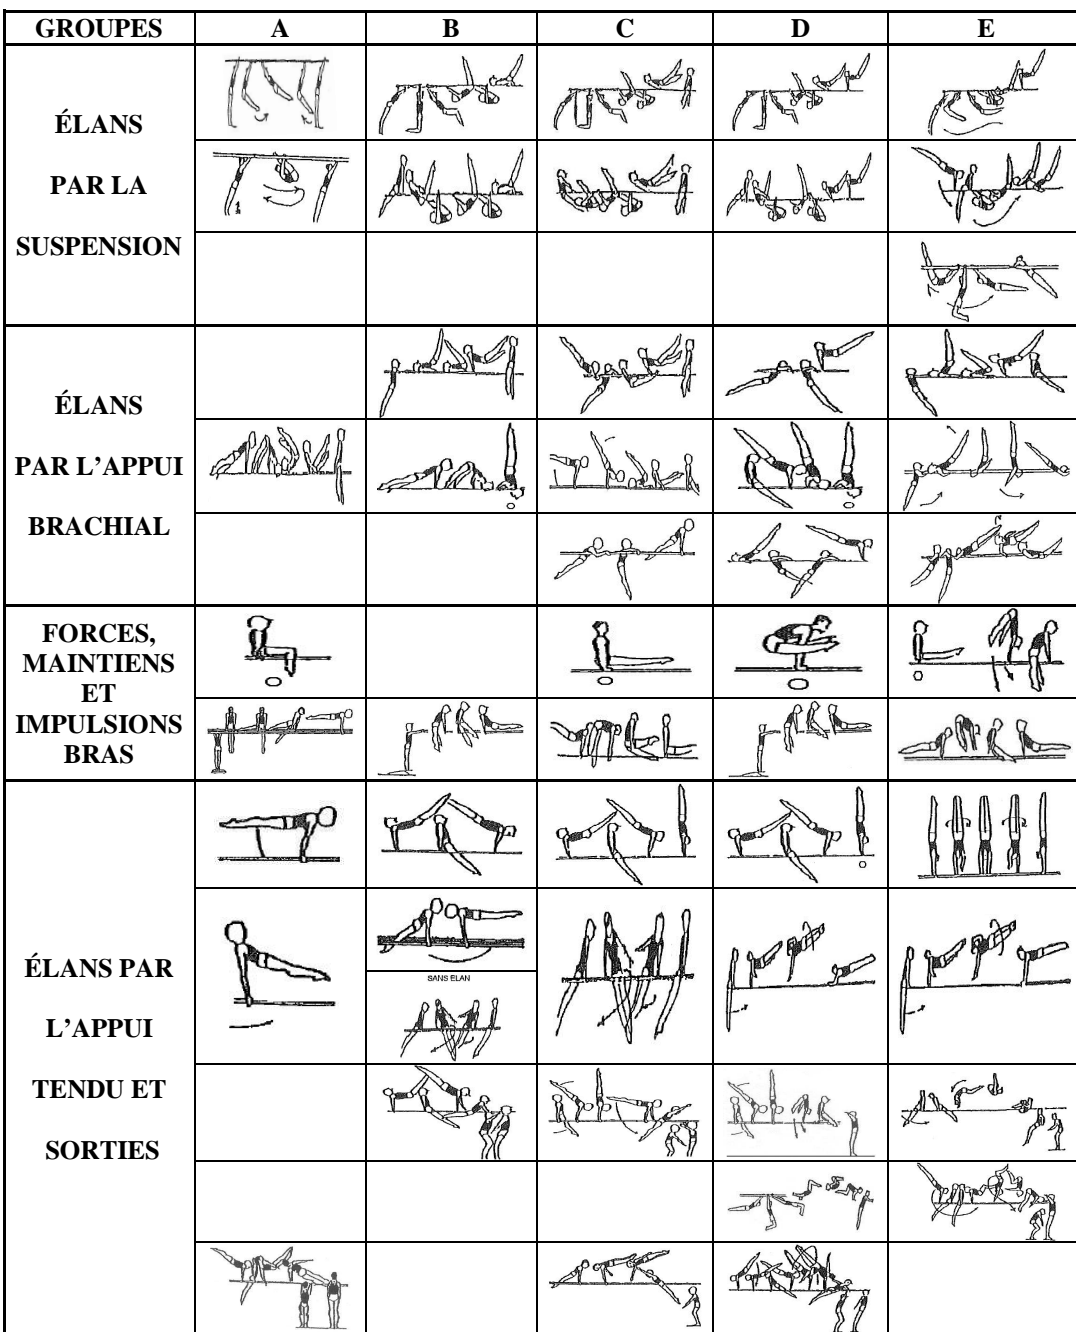 GROUPES A B C D E
ÉLANS
PAR LA
SUSPENSION
ÉLANS
PAR L'APPUI
BRACHIAL
FORCES,
MAINTIENS
ET
IMPULSIONS
BRAS
ÉLANS PAR
L'APPUI
TENDU ET
SORTIES
SANS ELAN